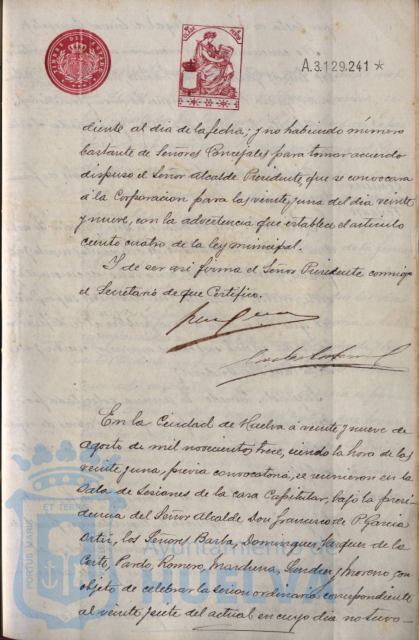 A.3.129.241 *
diente al dia de la fecha; y no habiendo número
bastante de Señores Concejales para tomar acuerdo
dispuso el Señor Alcalde Presidente, que se convocara
á la Corporacion para las veinte y una del dia veinte
y nueve, con la advertencia que establece el articulo
ciento cuatro de la ley municipal.
Y de ser asi firma el Señor Presidente conmigo
el Secretario de que Certifico.
En la Ciudad de Huelva á veinte y nueve de
Agosto de mil novecientos trece, siendo la hora de las
veinte y una, previa convocatoria, se reunieron en la
Sala de Sesiones de la casa Capitular, bajo la presi-
dencia del Señor Alcalde Don Francisco de P. García
Ortiz, los Señores Barba, Dominguez, Vazquez de la
Corte, Pardo, Romero, Mardena, y Moreno, con
objeto de celebrar la sesion ordinaria correspondiente
al veinte y siete del actual en cuyo dia no tuvo
PORTUS MARIS
ET TERRAE
Ayuntamiento de
HUELVA